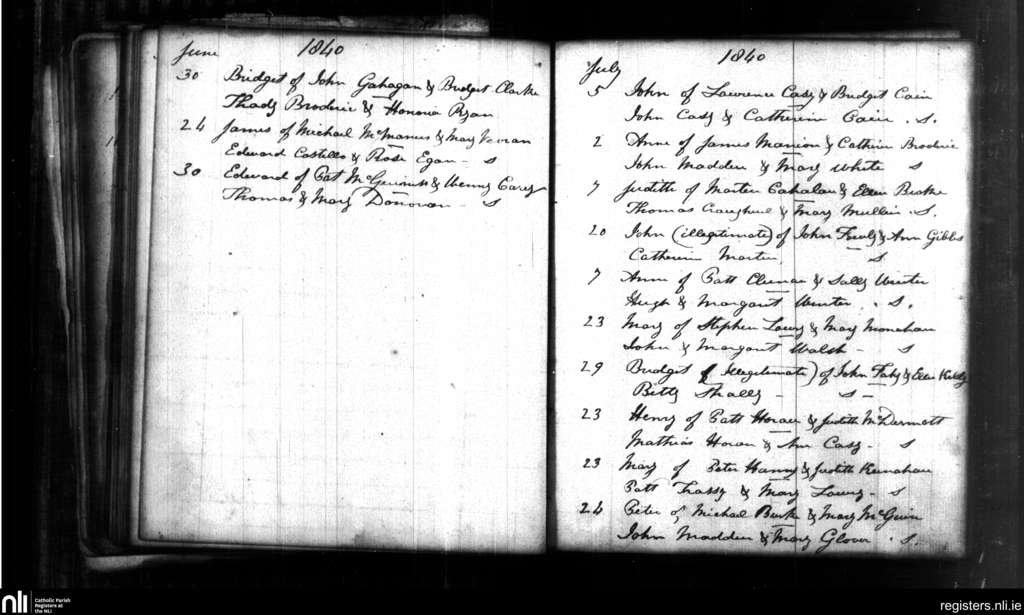 June 1840
30 Bridget of John Gahagan & Bridget Clarke
Thady Broderic & Honoria Ryan
24 James of Michael McManus & Mary
Edward Costello & Rose Egan - S
30 Edward of Pat & Carey
Thomas & Mary Donovan - S
1840
July
5 John of Lawrence Casy & Bridget Cain
John Casy & Catherin Cain . S.
2 Anne of James Mannion & Cathrin Broderic
John Madden & Mary White S
7 Judith of Martin Cahalan & Ellen Burke
Thomas & Mary Mullin . S.
20 John (illegitimate) of John & Ann Gibbs
Catherin Martin S
7 Anne of Patt & Sally Winter
Hugh & Margaret Winter . S.
23 Mary of Stephen Lowry & Mary Monahan
John & Margaret Walsh - S
29 Bridget (Illegitimate) of John Fahy & Ellen
Betty Shally - S -
23 Henry of Patt Horan & Judith McDermott
Mathias Horan & Ann Casy - S
23 Mary of Peter & Judith
Patt & Mary Lowry - S
24 Peter of Michael Burke & Mary McGuin
John Madden & Mary Glover . S.
nli
Catholic Parish
Registers at
the NLI
registers.nli.ie